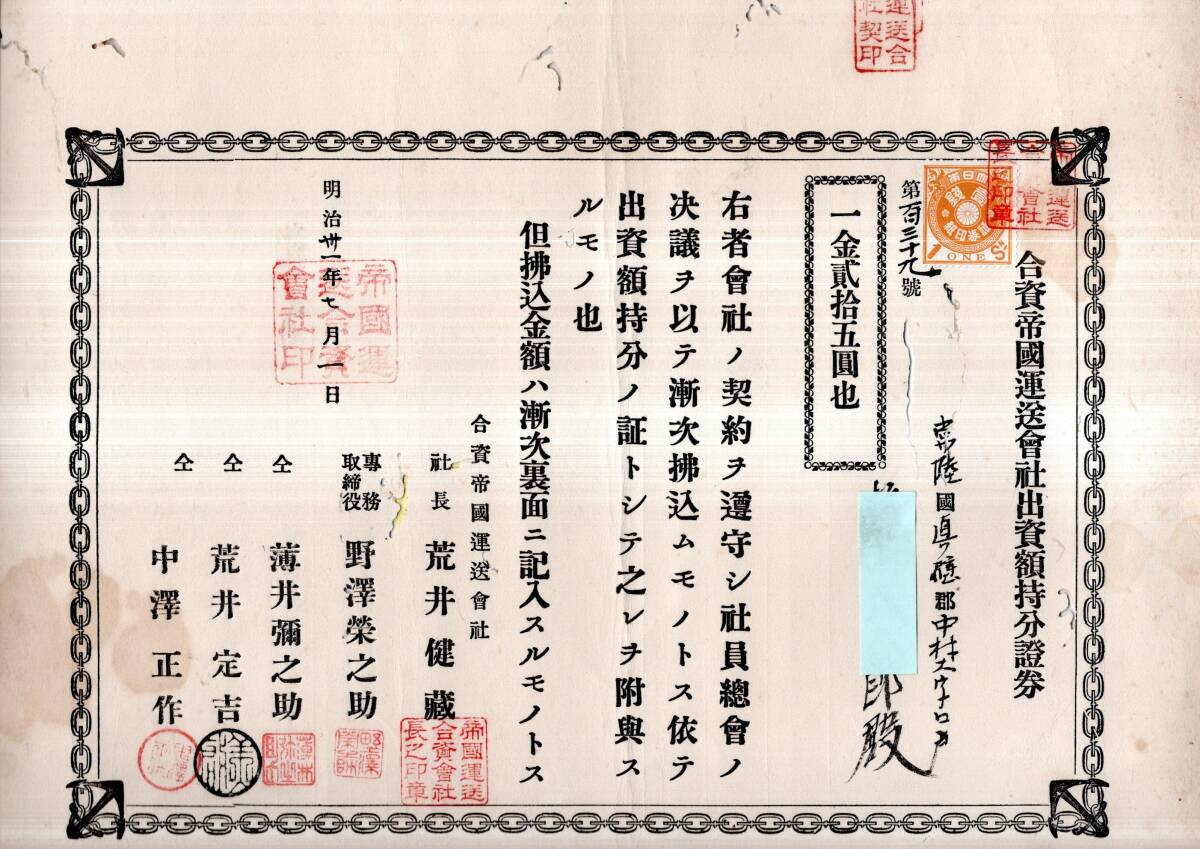 合資帝國運送會社出資額持分證券
第百三十九號
一金貳拾五圓也
常陸國真壁郡中村大字
郎殿
右者會社ノ契約ヲ遵守シ社員總會ノ
決議ヲ以テ漸次拂込ムモノトス依テ
出資額持分ノ証トシテ之レヲ附與ス
ルモノ也
但拂込金額ハ漸次裏面ニ記入スルモノトス
明治卅一年七月一日
合資帝國運送會社
社長 荒井健藏
專務取締役 野澤榮之助
仝 薄井彌之助
仝 荒井定吉
仝 中澤正作
帝國運送合資會社印
帝國運送合資會社長之印章
運送合
社契印
1 ONE Sn